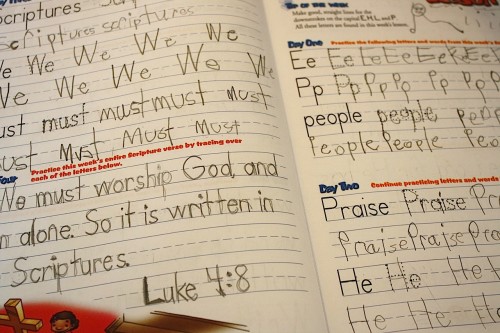 criptures Scriptures
criptures scriptures
We We We We
We We We We We
ust must must must must
ust Must Must Must
Practice this week's entire Scripture verse by tracing over
each of the letters below.
We must worship God, and
alone. So it is written in
Scriptures.
Luke 4:8
TIP OF THE WEEK
Make good, straight lines for the
downstrokes on the capital E, H, L, and P.
All these letters are found in this week's lesson.
Day One Practice the following letters and words from this week's
Ee Ee Ee Ee Ee Ee
Pp Pp Pp Pp Pp Pp
people people people
People People Peo
Day Two Continue practicing letters and words
Praise Praise Pra
Praise Praise Pra
He He He H
He He He